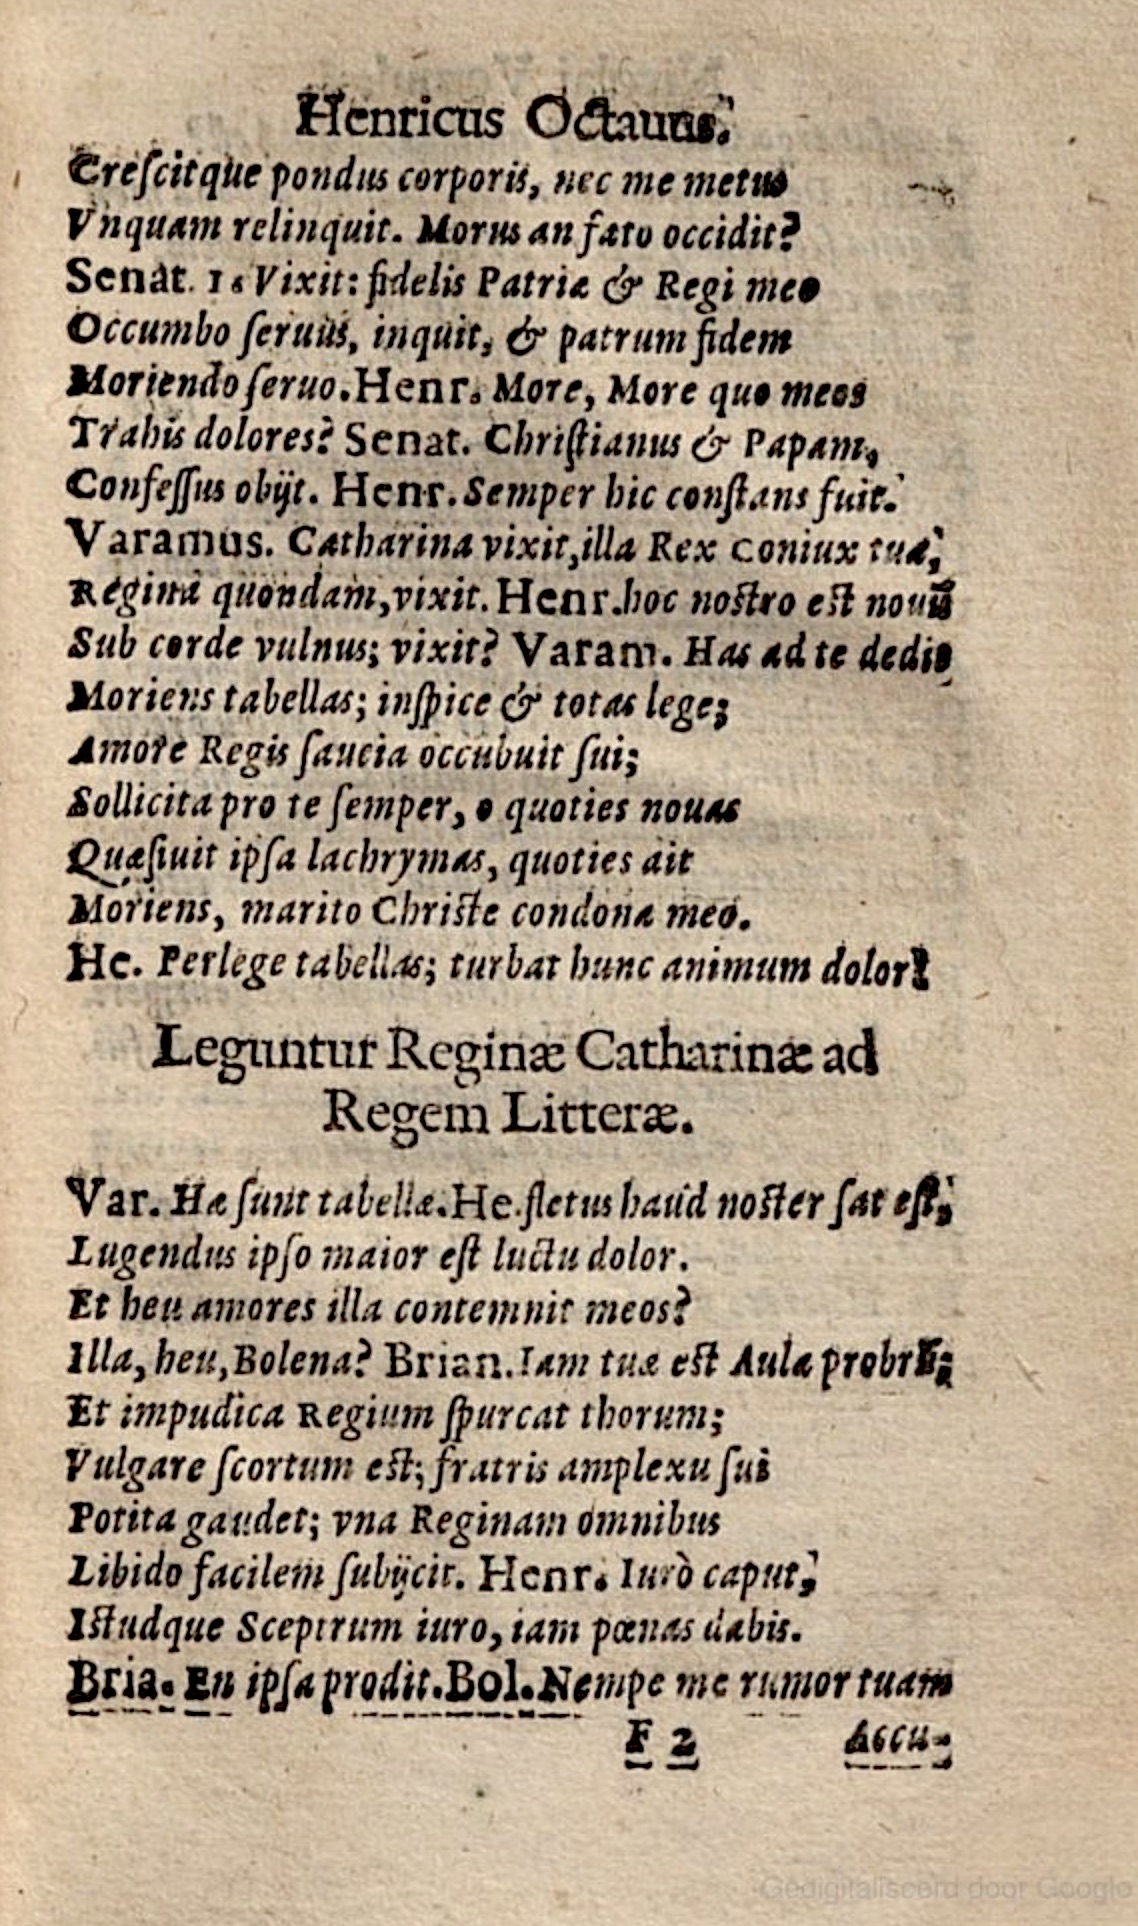 Henricus Octauus.
Creſcitque pondus corporis, nec me metus
Vnquam relinquit. Morus an fato occidit?
Senat. 1. Vixit: fidelis Patriæ & Regi meo
Occumbo ſeruus, inquit, & patrum fidem
Moriendo ſeruo. Henr. More, More quo meos
Trahis dolores? Senat. Chriſtianus & Papam,
Confeſſus obijt. Henr. Semper hic conſtans fuit.
Varamus. Catharina vixit, illa Rex Coniux tua,
Regina quondam, vixit. Henr. hoc noſtro eſt nouū
Sub corde vulnus; vixit? Varam. Has ad te dedit
Moriens tabellas; inſpice & totas lege;
Amore Regis ſaucia occubuit ſui;
Sollicita pro te ſemper, o quoties nouas
Quæſiuit ipſa lachrymas, quoties ait
Moriens, marito Chriſte condona meo.
He. Perlege tabellas; turbat hunc animum dolor!
Leguntur Reginæ Catharinæ ad
Regem Litteræ.
Var. Hæ ſunt tabellæ. He. fletus haud noſter ſat eſt,
Lugendus ipſo maior eſt luctu dolor.
Et heu amores illa contemnit meos?
Illa, heu, Bolena? Brian. Iam tuæ eſt Aula probrū;
Et impudica Regium ſpurcat thorum;
Vulgare ſcortum eſt; fratris amplexu ſui
Potita gaudet; vna Reginam omnibus
Libido facilem ſubijcit. Henr. Iurò caput,
Iſtudque Sceptrum iuro, iam pœnas dabis.
Bria. En ipſa prodit. Bol. Nempe me rumor tuam
F 2 Accu-
Gedigitaliseerd door Google